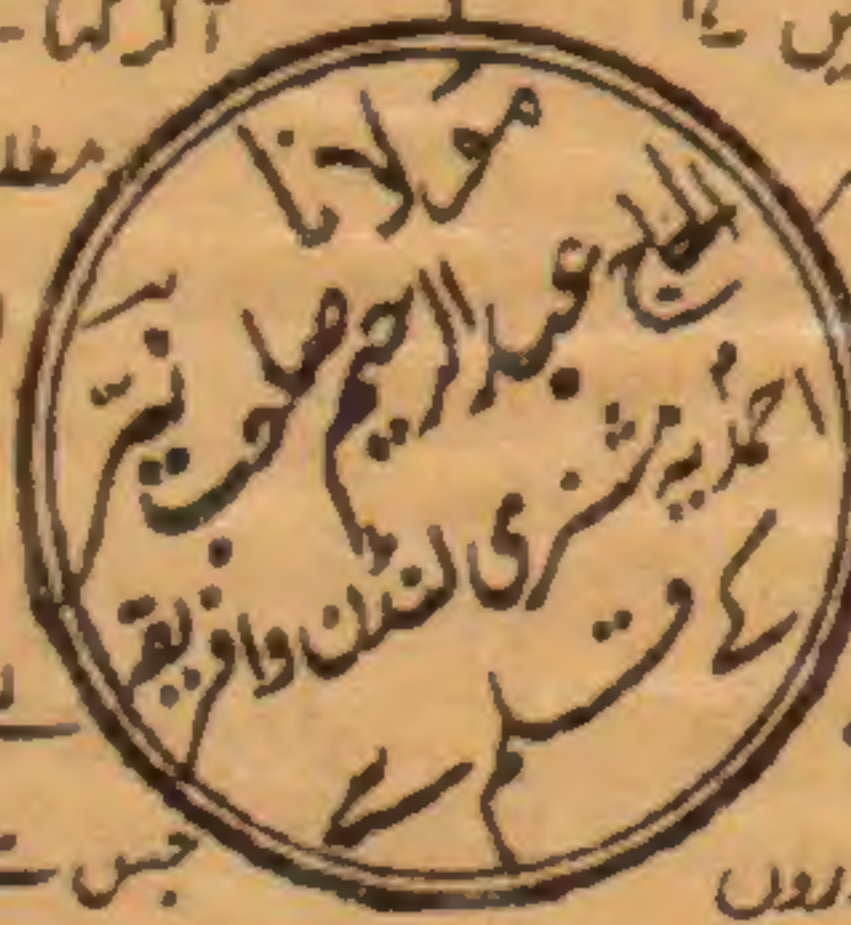 مولانا
الحاج عبدالرحیم صاحب نیّر
احمدیہ مشنری لندن وافریقہ
کے قلم سے
مطلا
جس
روں